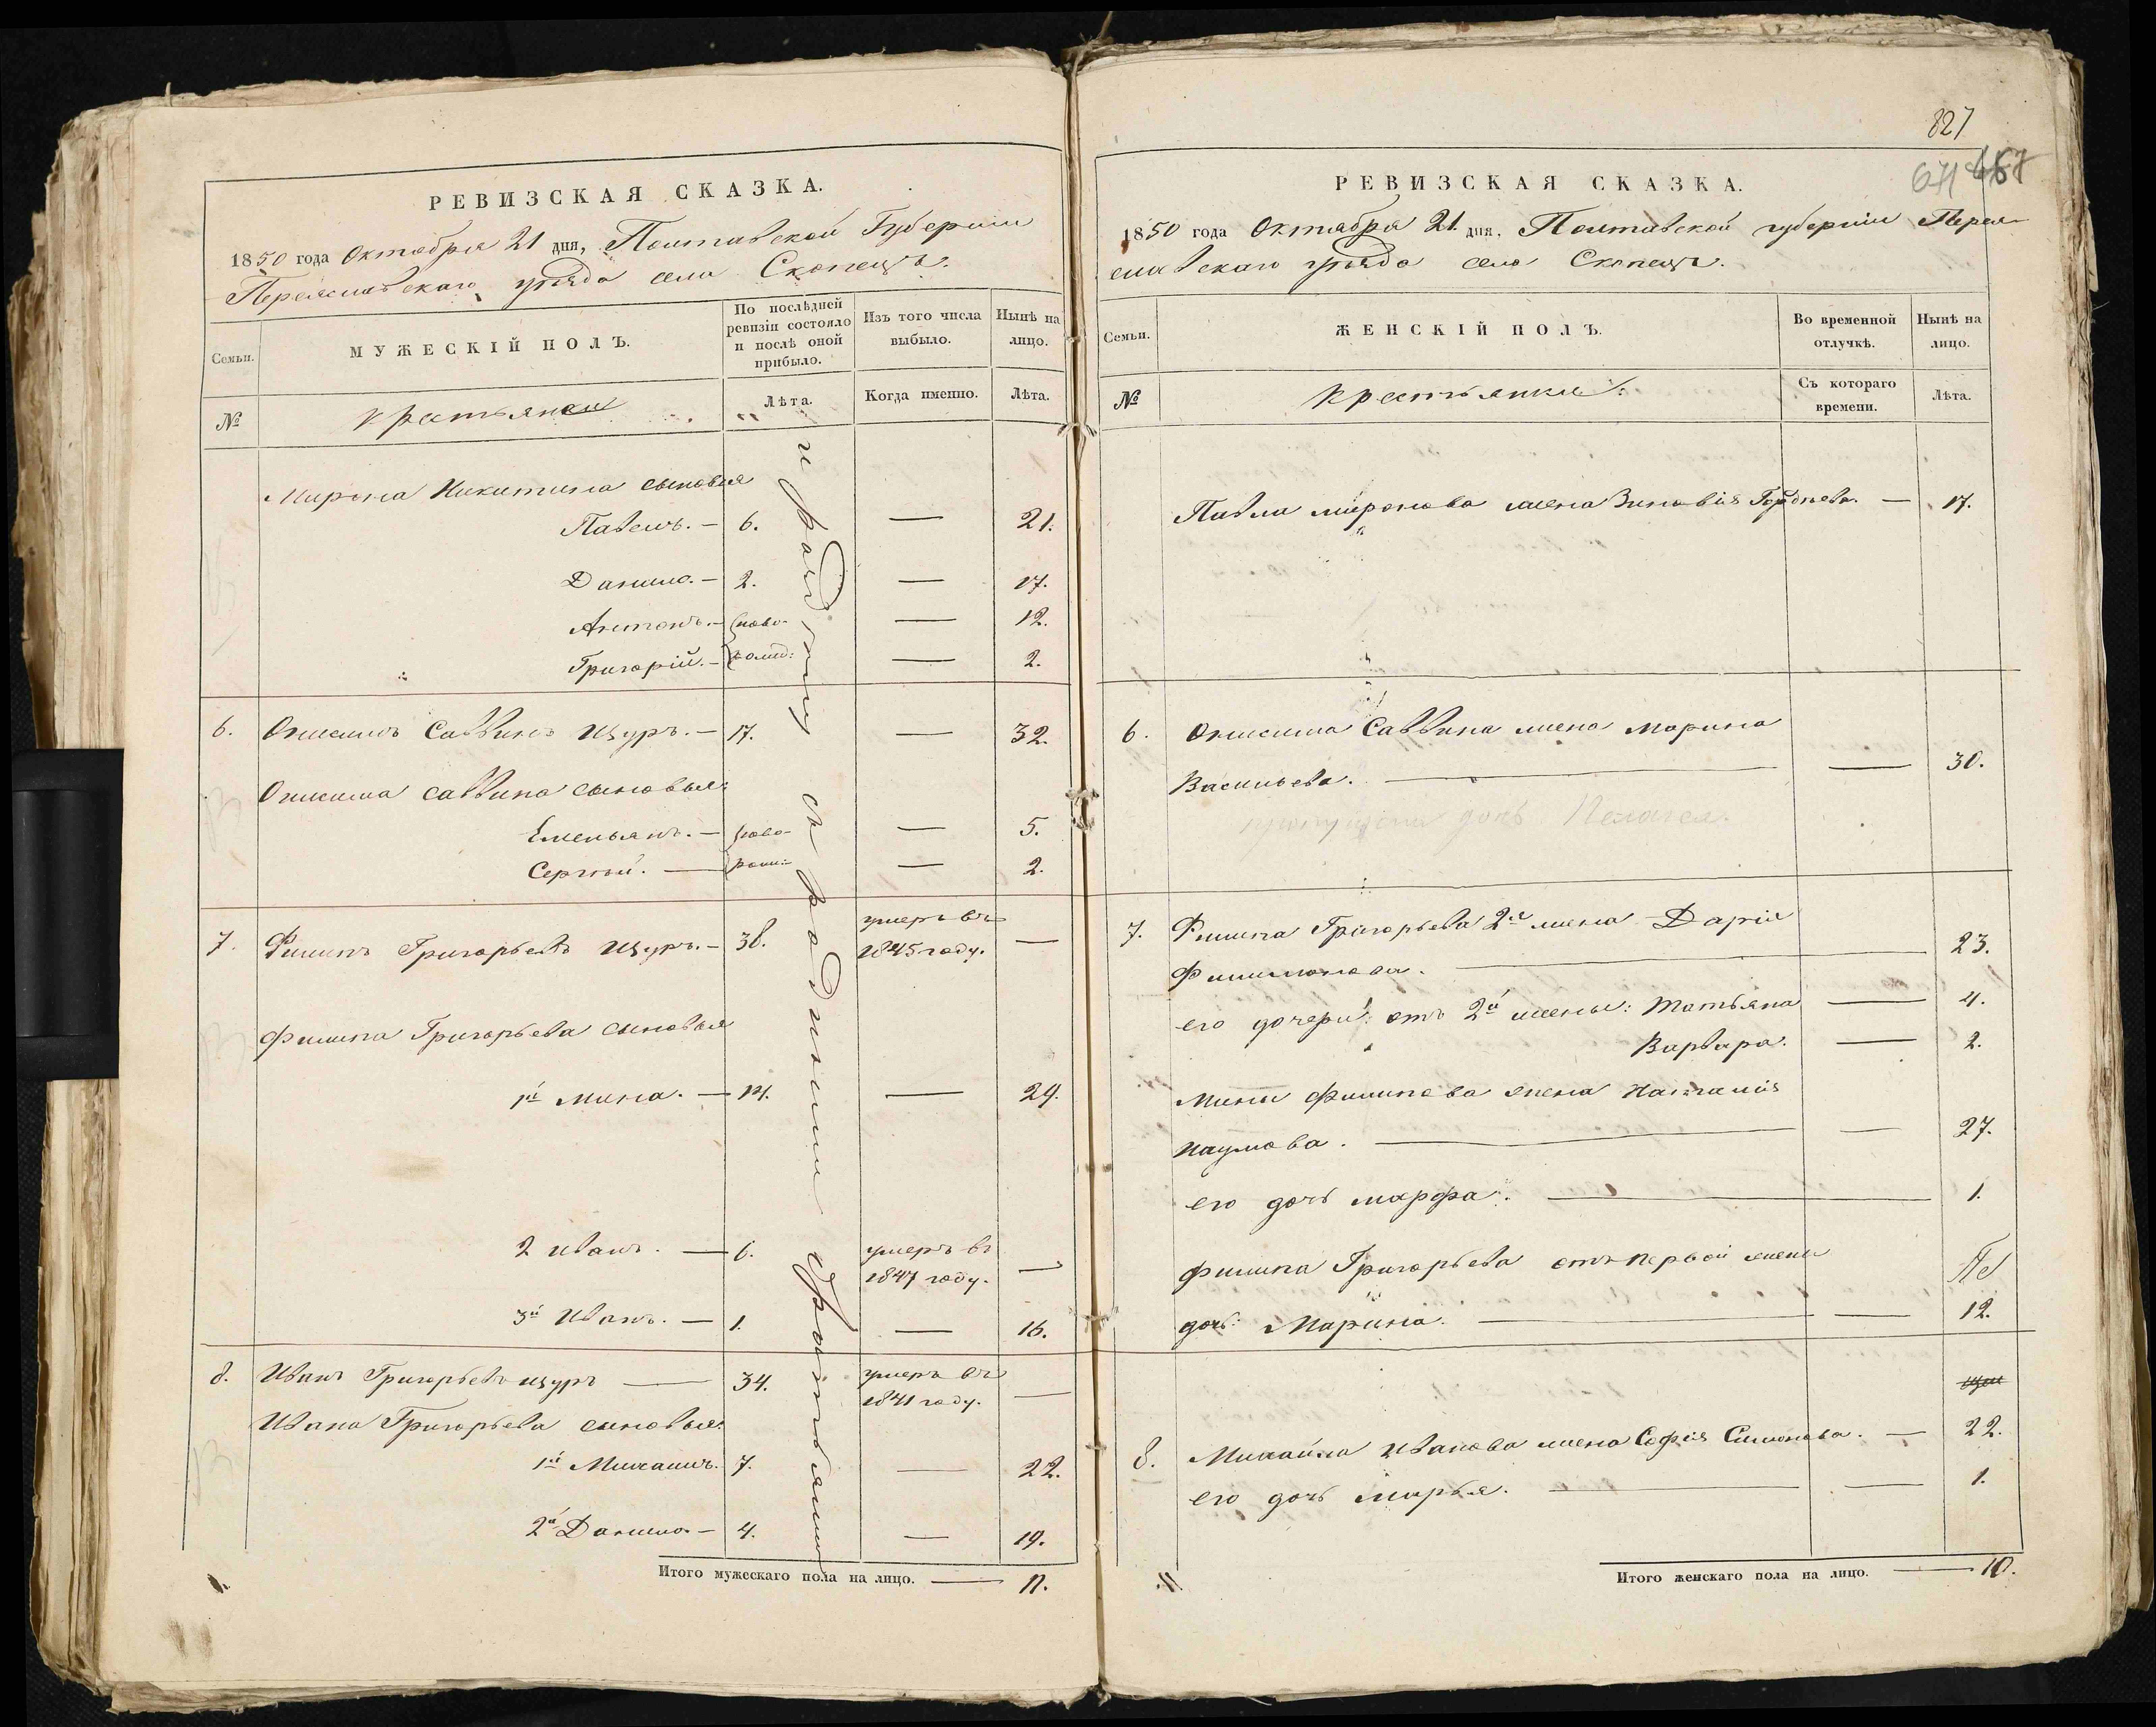 РЕВИЗСКАЯ СКАЗКА.
1850 года Октября 21 дня, Полтавской Губернии
Переяславскаго уѣзда села Скопецъ.
Семьи.
МУЖЕСКІЙ ПОЛЪ.
По послѣдней ревизіи состояло и послѣ оной прибыло.
Изъ того числа выбыло.
Нынѣ на лицо.
№
Крестьяне
Лѣта.
Когда именно.
Лѣта.
Мирона Никитина сыновья
Павелъ. — 6. — 21.
Данило. — 2. — 17.
Антонъ. — ново- — 12.
Григорій. — рожд: — 2.
6. Онисимъ Саввинъ Щуръ. — 17. — 32.
Онисима Саввина сыновья:
Емельянъ. — ново- — 5.
Сергѣй. — рожд: — 2.
7. Филипъ Григорьевъ Щуръ. — 38. умеръ въ 1845 году. —
Филипа Григорьева сыновья
1й Мина. — 14. — 29.
2 Иванъ. — 6. умеръ въ 1847 году. —
3й Иванъ. — 1. — 16.
8. Иванъ Григорьевъ Щуръ — 34. умеръ въ 1841 году. —
Ивана Григорьева сыновья:
1й Михаилъ. 7. — 22.
2й Данило. — 4. — 19.
Итого мужескаго пола на лицо. — 11.
съ родными братьями
827
671
РЕВИЗСКАЯ СКАЗКА.
1850 года Октября 21 дня, Полтавской губерніи Перея-
славскаго уѣзда села Скопецъ.
Семьи.
ЖЕНСКІЙ ПОЛЪ.
Во временной отлучкѣ.
Нынѣ на лицо.
№
Крестьянки.
Съ котораго времени.
Лѣта.
Павла Миронова жена Зиновія Гордѣева. — 17.
6. Онисима Саввина жена Марина
Васильева. — — 30.
пропущена дочь Пелагея.
7. Филипа Григорьева 2я жена Дарія
Филимонова. — 23.
его дочери: отъ 2й жены: Татьяна — 4.
Варвара. — 2.
Мины Филипова жена Наталія
Наумова. — — 27.
его дочь Марфа. — 1.
Филипа Григорьева отъ первой жены
дочь: Марина. — — 12.
8. Михайла Иванова жена Софія Симонова. — 22.
его дочь Марья. — — 1.
Итого женскаго пола на лицо. — 10.